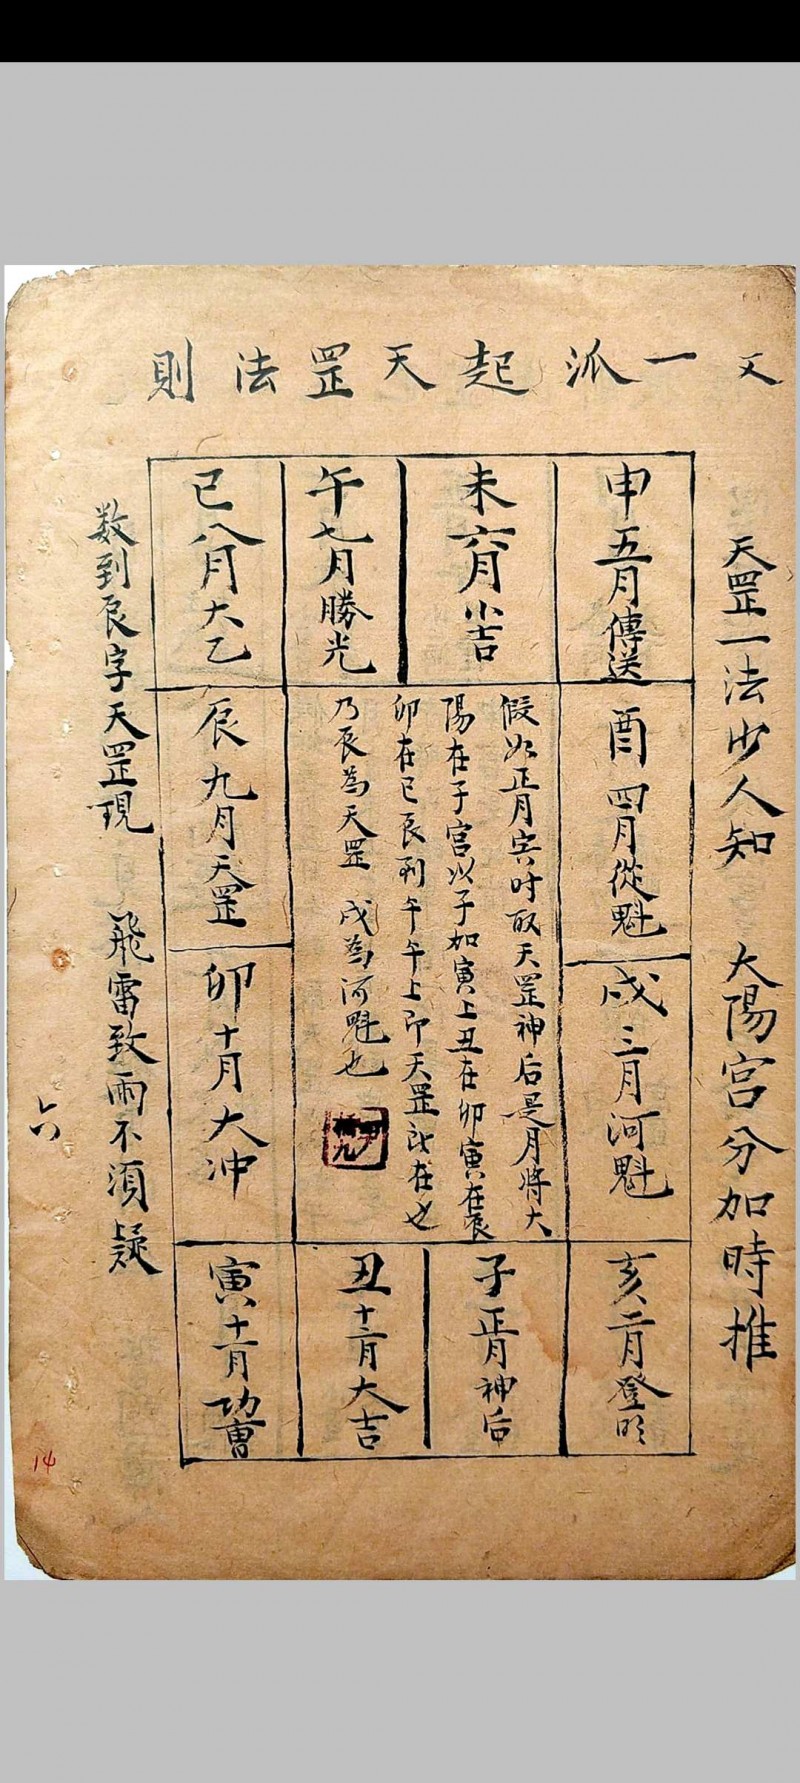 又一派起天罡法則
天罡一法少人知 太陽宮分加時推
申五月傳送
未六月小吉
午七月勝光
巳八月大乙
酉四月從魁
戌三月河魁
假如正月寅时取天罡神后是月將大
陽在子宮以子加寅上丑在卯寅在辰
卯在巳辰到午午上即天罡所在也
乃辰為天罡 戌為河魁也
辰九月天罡
卯十月大冲
亥二月登明
子正月神后
丑十二月大吉
寅十一月功曹
数到辰字天罡現 飛雷致雨不須疑
六
14